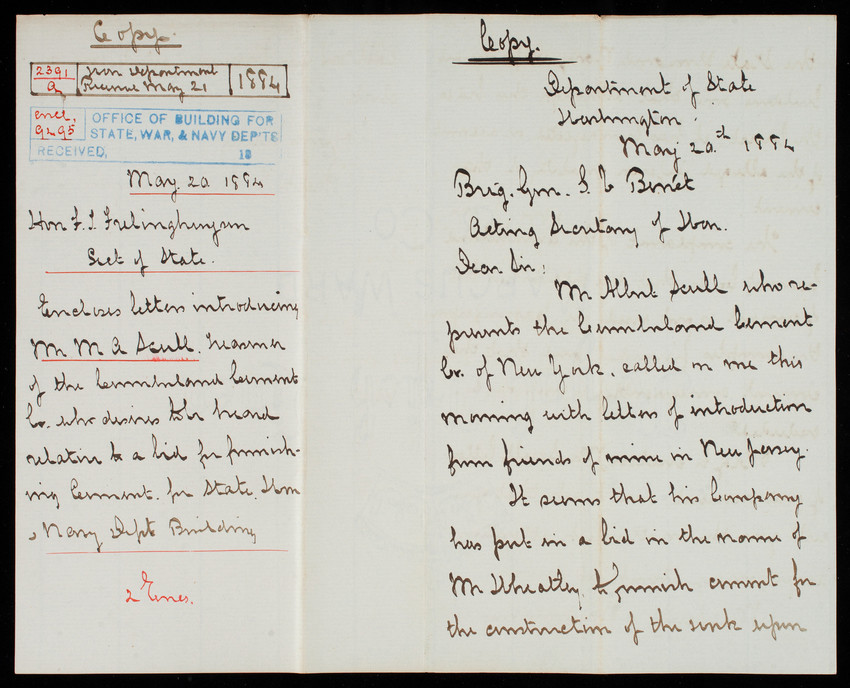 Copy.
2391
War Department
Received May 21
1884
encl.
9495
OFFICE OF BUILDING FOR
STATE, WAR, & NAVY DEP'TS
RECEIVED, 18
May. 20 1884
Hon F. T. Frelinghuysen
Sect of State.
Encloses letters introducing
Mr M A Scull. Treasurer
of the Cumberland Cement
Co. who desires to be heard
relative to a bid for furnish-
ing Cement. for State. War
& Navy Dept Building
2 Encs.
Copy.
Department of State
Washington
May 20th 1884
Brig. Gen. S. V Benét
Acting Secretary of War.
Dear Sir:
Mr Albert Scull who re-
presents the Cumberland Cement
Co. of New York. called on me this
morning with letters of introduction
from friends of mine in New Jersey.
It seems that his Company
has put in a bid in the name of
Mr Wheatley, to furnish cement for
the construction of the work upon